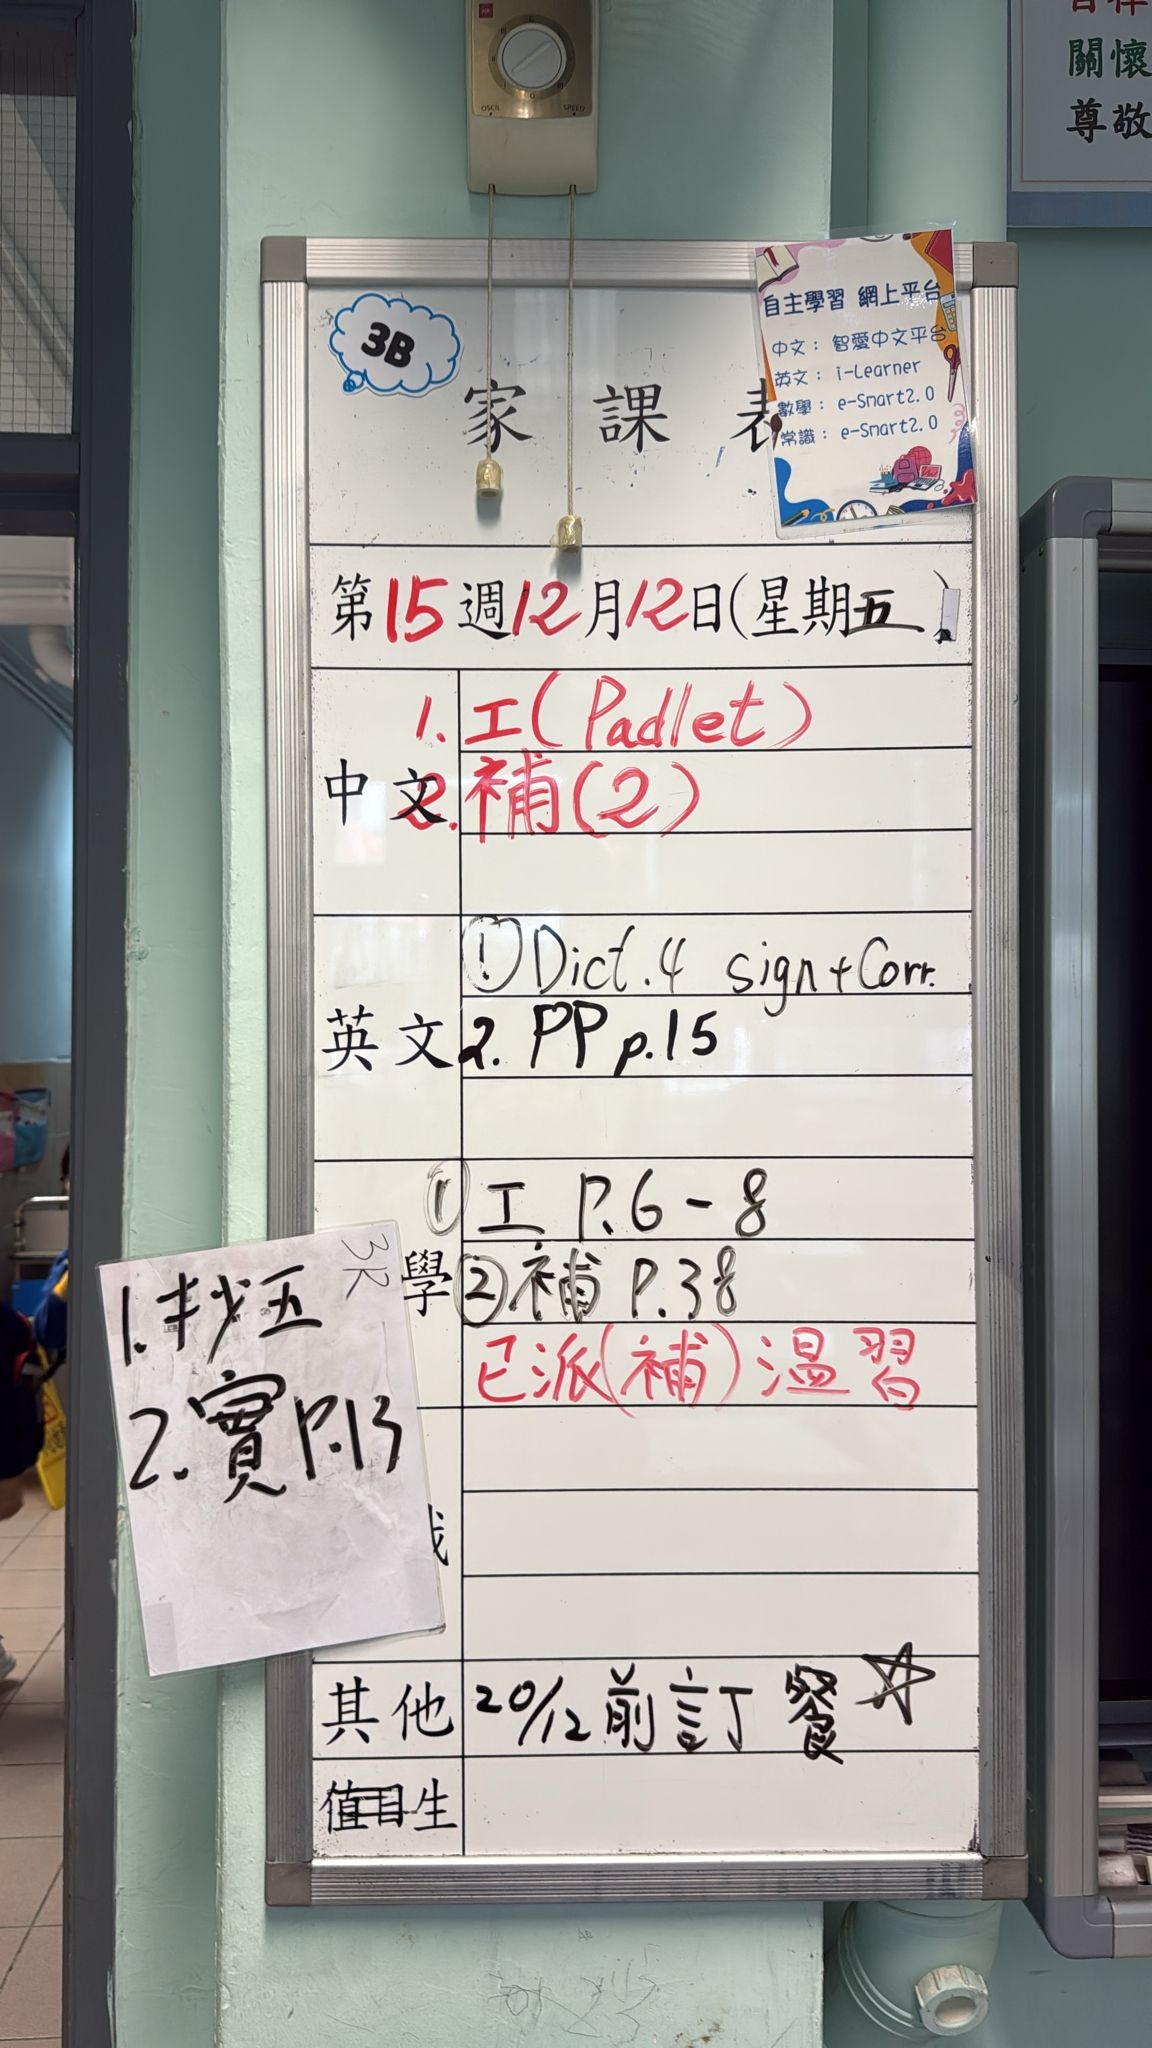 OSCIL SPEED
關懷
尊敬
3B
家課表
自主學習 網上平台
中文： 智愛中文平台
英文： i-Learner
數學： e-Smart2.0
常識： e-Smart2.0
第15週12月12日(星期五)
中文
1. 工(Padlet)
2. 補(2)
英文
① Dict.4 sign+Corr.
2. PP p.15
學
① 工 P.6-8
② 補 P.38
已派(補)溫習
1. 抄五
2. 實P.13
其他
20/12前訂餐☆
值日生